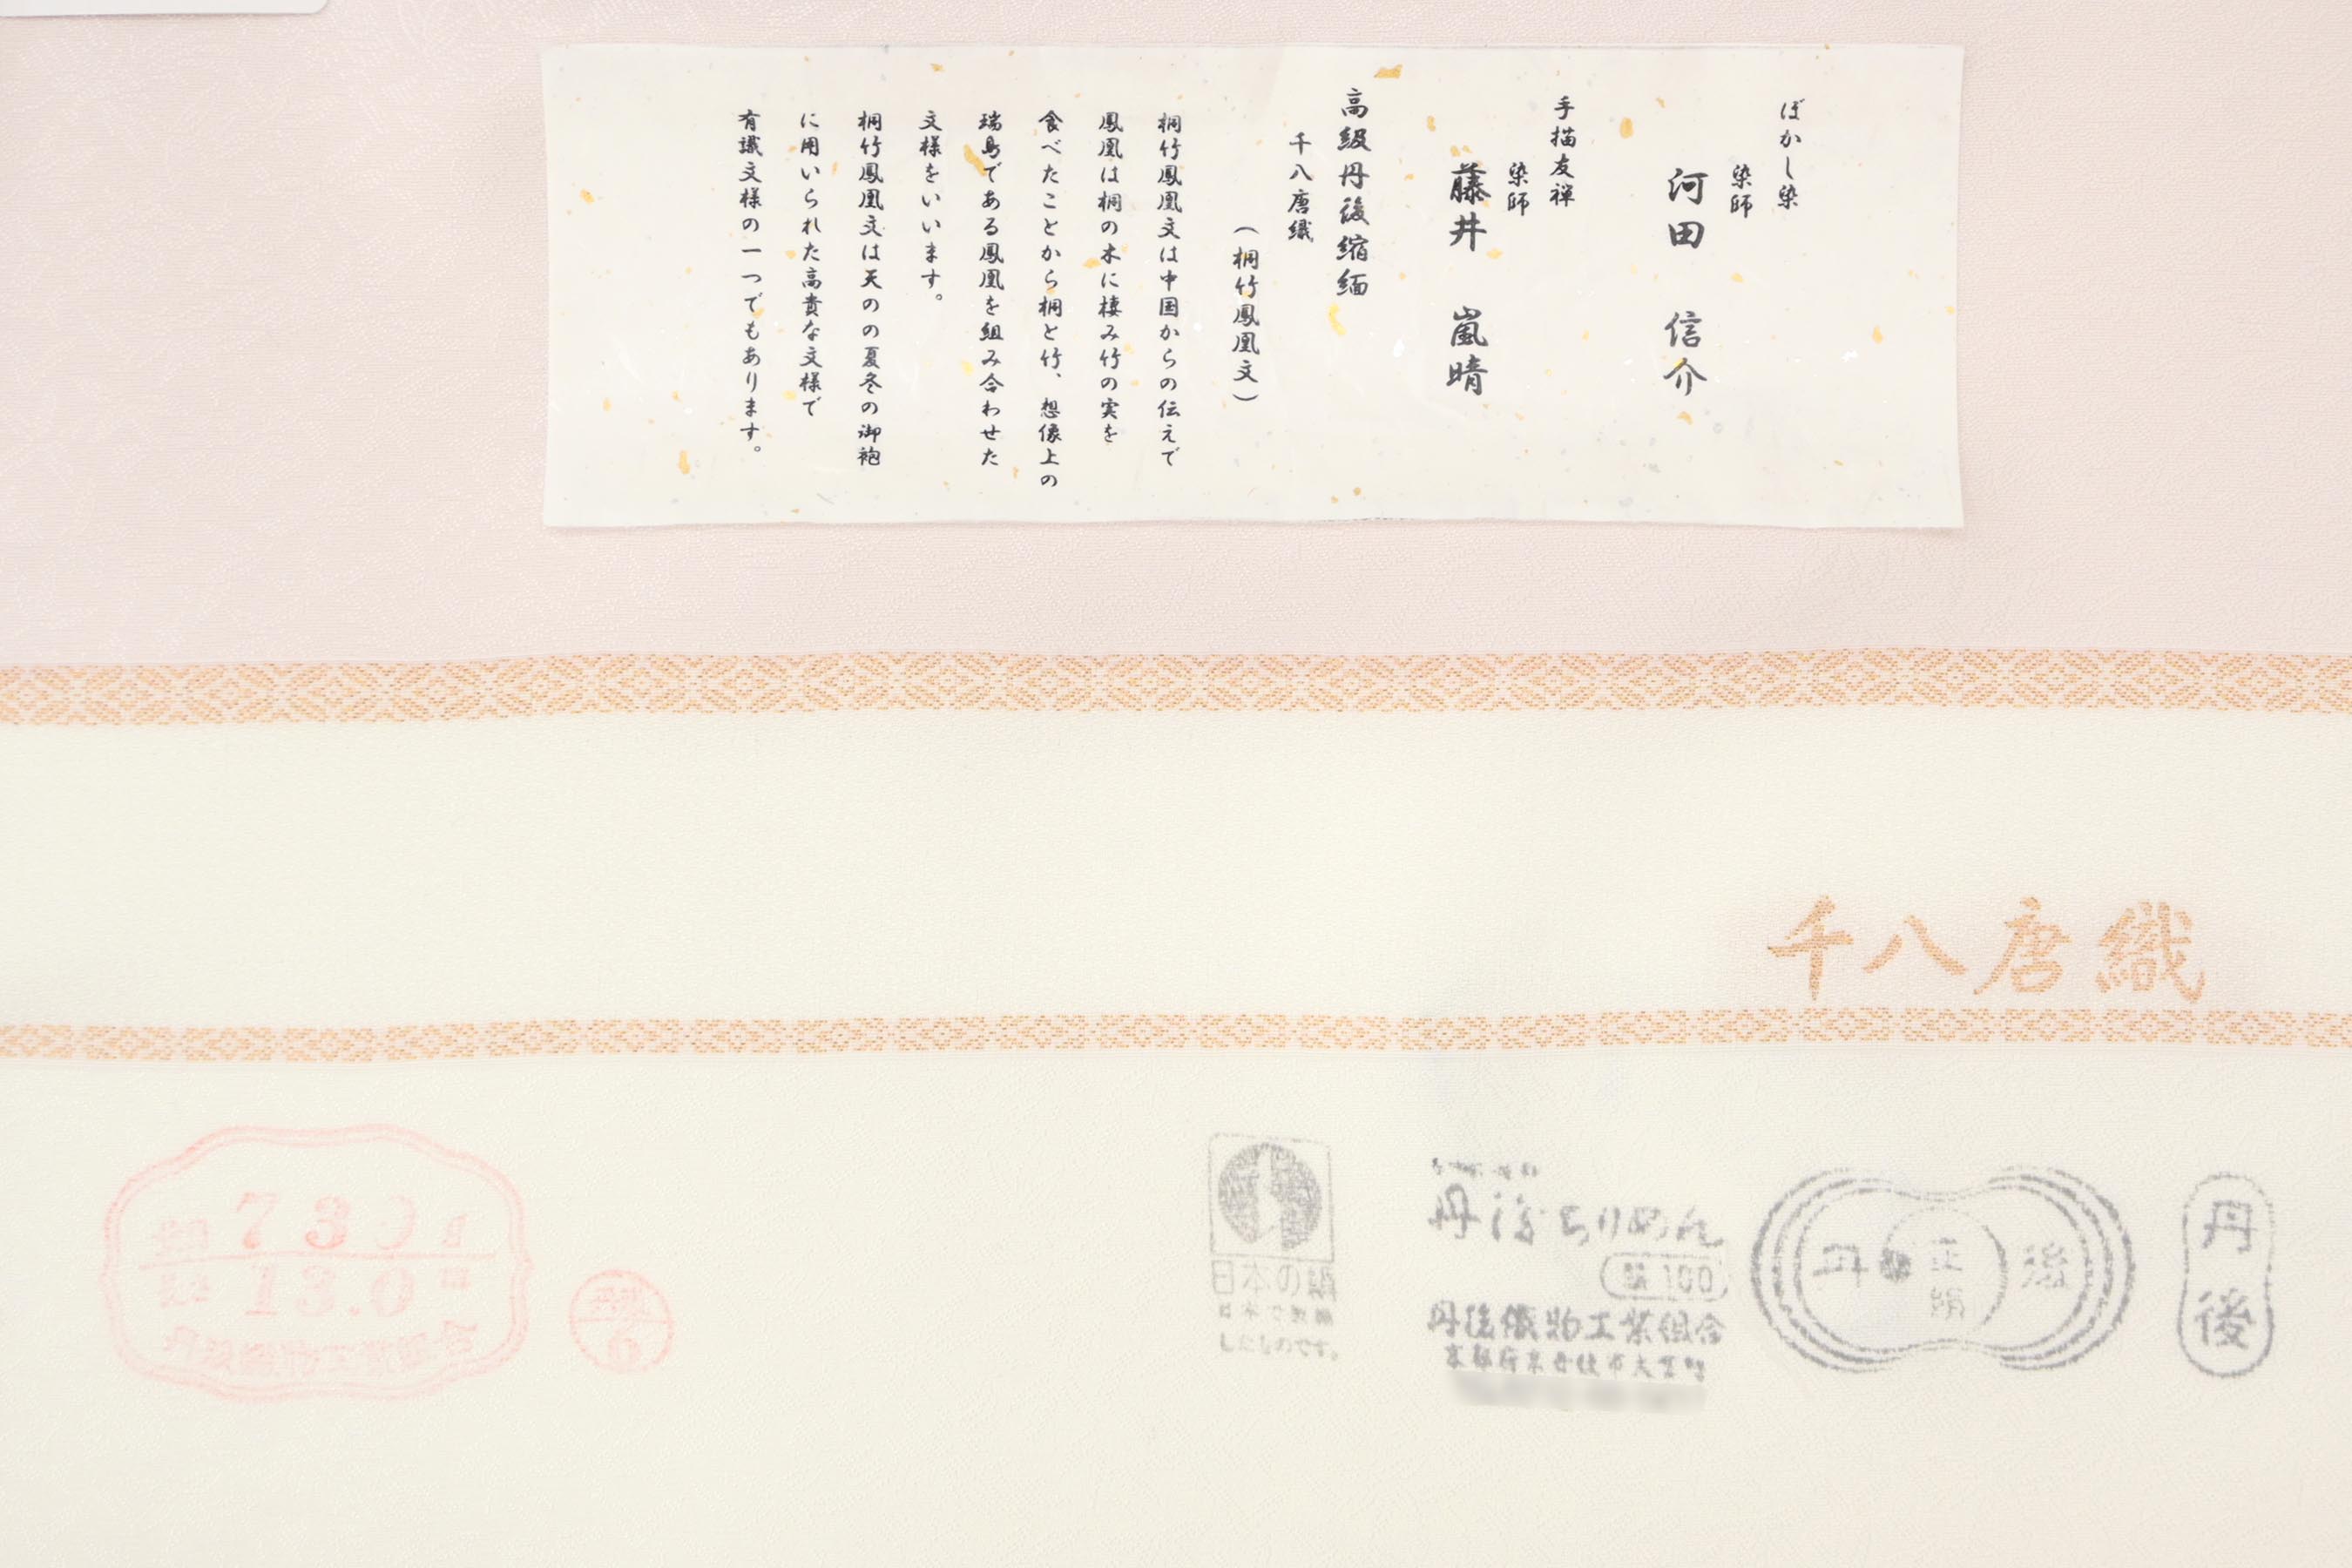 ぼかし染
染師
河田 信介
手描友禅
染師
藤井 嵐晴
高級丹後縮緬
千八唐織
(桐竹鳳凰文)
桐竹鳳凰文は中国からの伝えで
鳳凰は桐の木に棲み竹の実を
食べたことから桐と竹、想像上の
瑞鳥である鳳凰を組み合わせた
文様をいいます。
桐竹鳳凰文は天のの夏冬の御袍
に用いられた高貴な文様で
有識文様の一つでもあります。
千八唐織
730
13.0
丹後織物工業組合
日本の絹
日本で製織
したものです。
丹後ちりめん
絹100
丹後織物工業組合
京都府京丹後市大宮町
丹 正絹 後
丹後